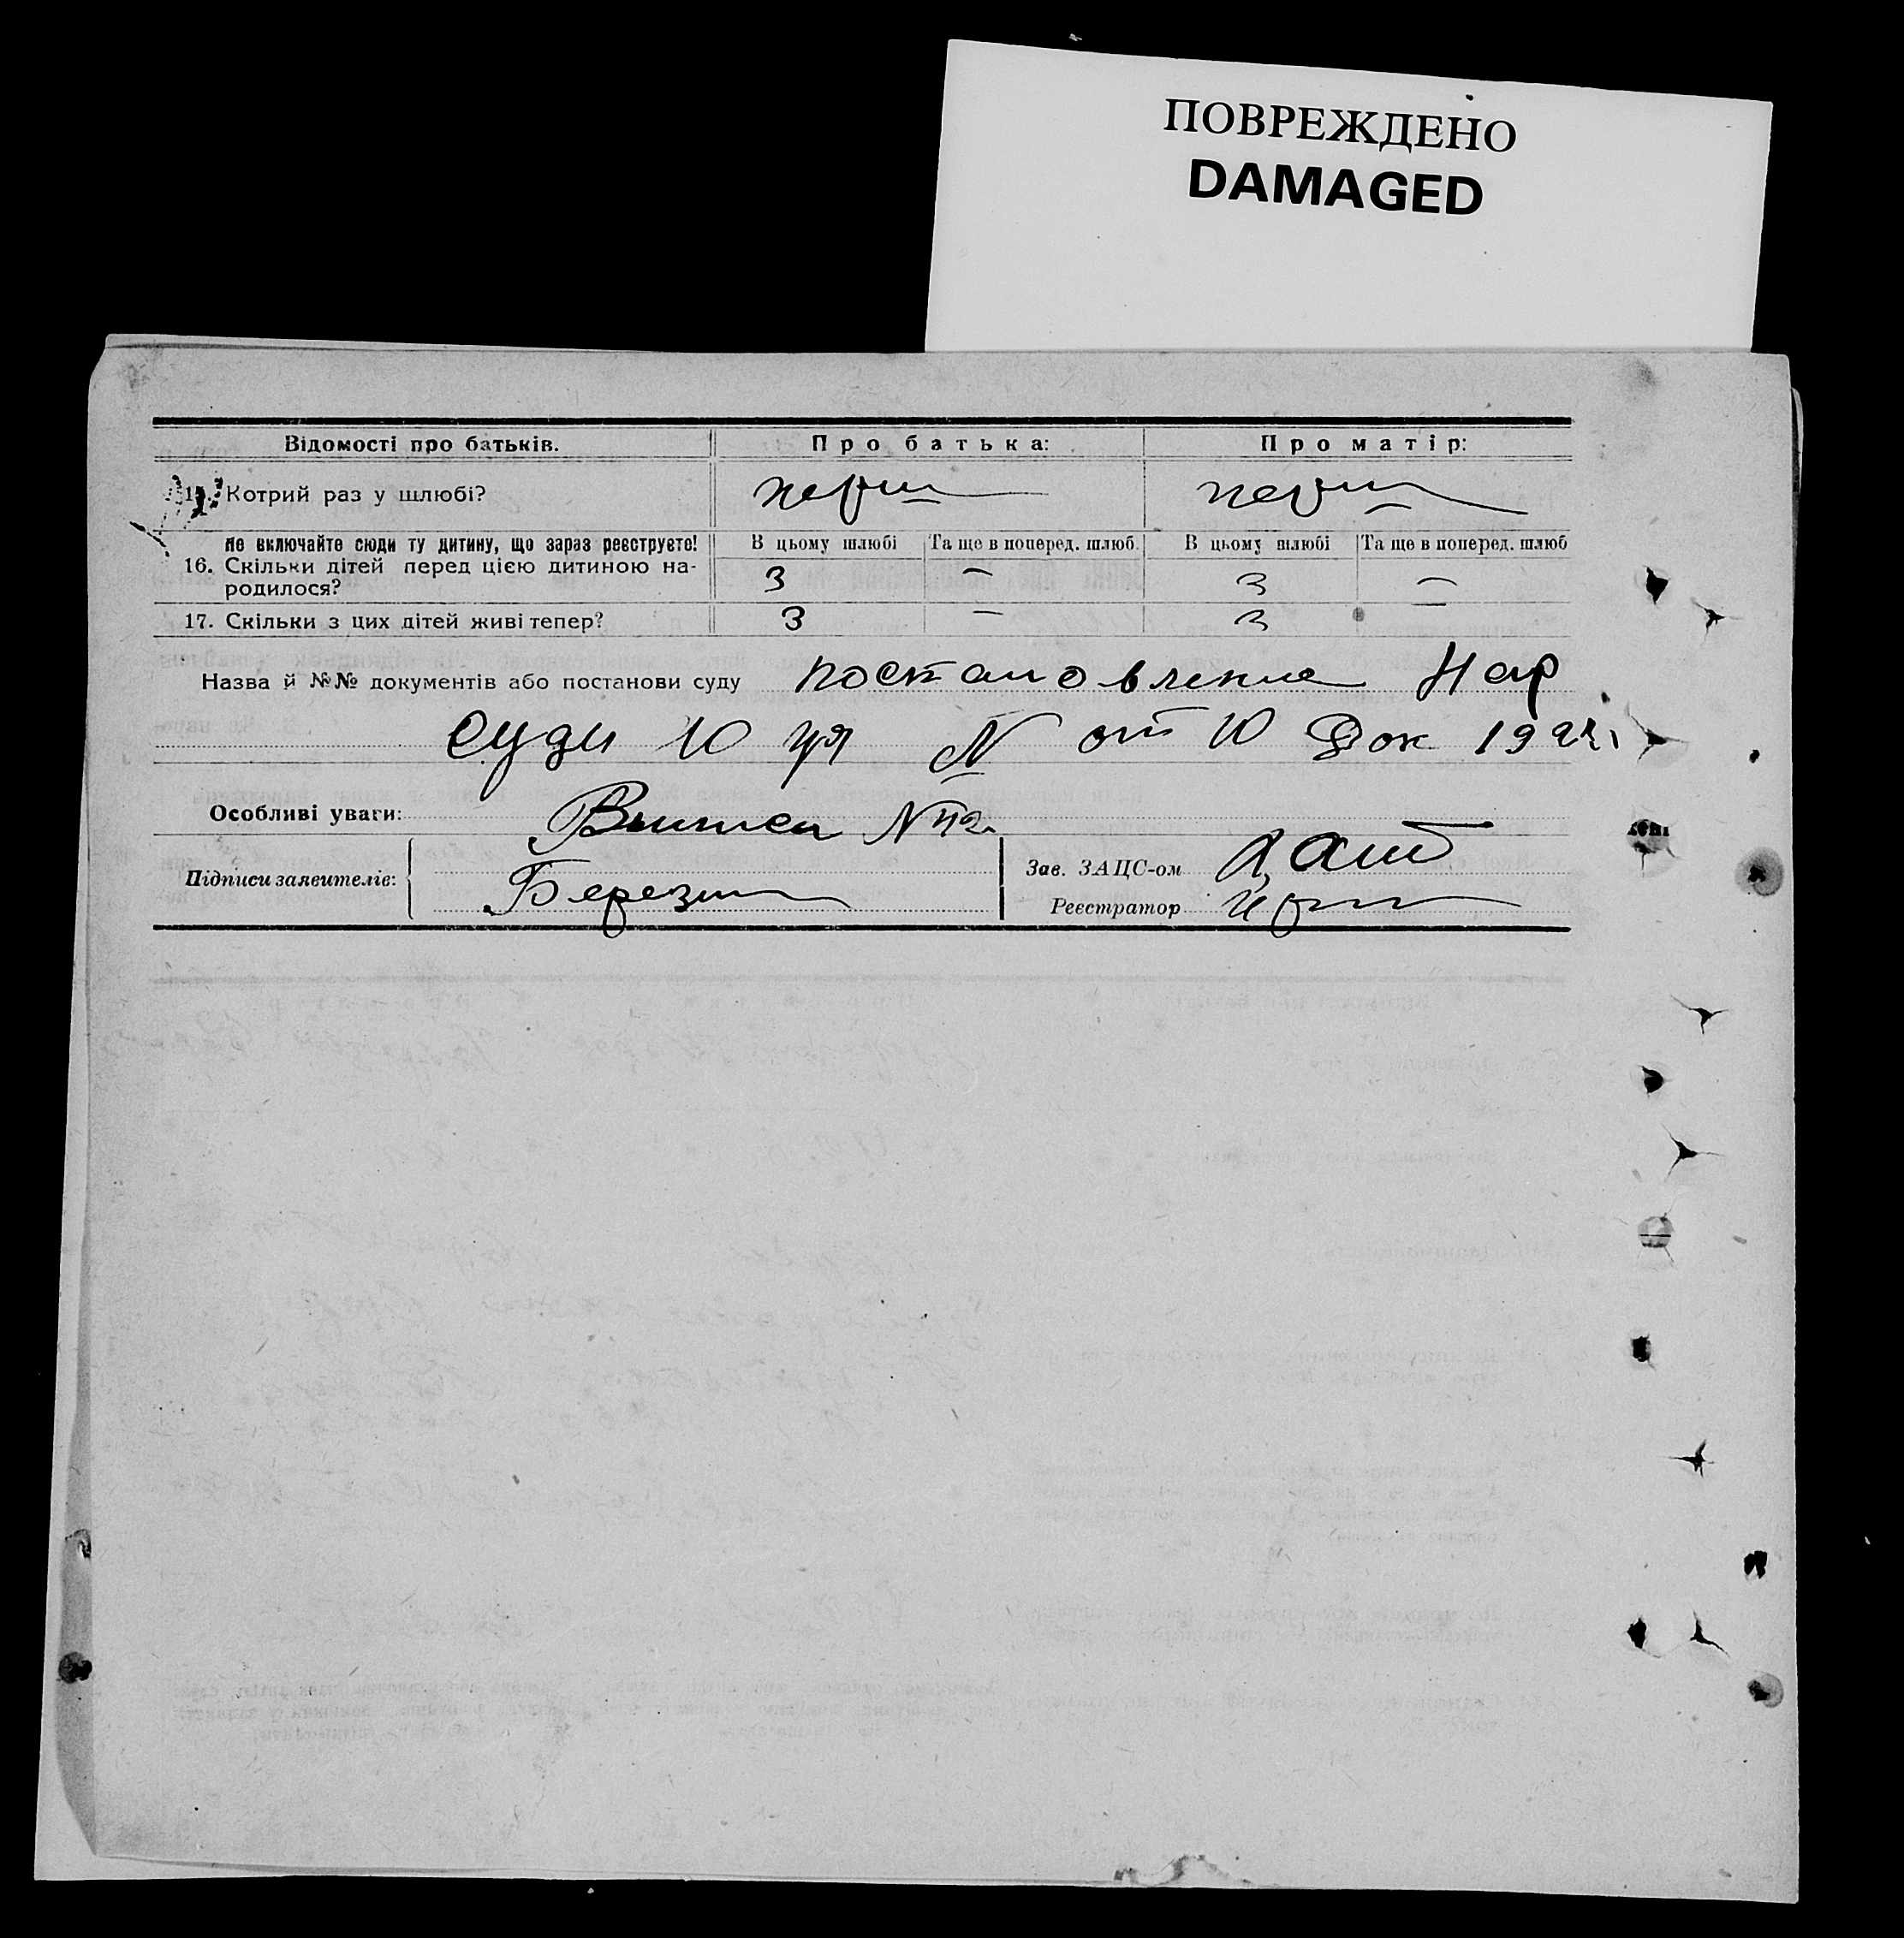 ПОВРЕЖДЕНО
DAMAGED
Відомості про батьків. Про батька: Про матір:
Котрий раз у шлюбі? перш перш
не включайте сюди ту дитину, що зараз реєструєте! В цьому шлюбі Та ще в поперед. шлюб. В цьому шлюбі Та ще в поперед. шлюб
16. Скільки дітей перед цією дитиною на- 3 — 3 —
родилося?
17. Скільки з цих дітей живі тепер? 3 — 3
Назва й №№ документів або постанови суду постановление Нар
суда 10 N от 10 192
Особливі уваги: N
Підписи заявителів: Зав. ЗАЦС-ом
Березин Реєстратор